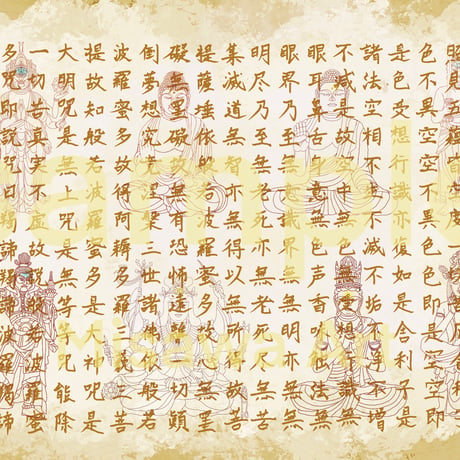 照見五蘊皆空度一切苦厄舎利子
色不異空空不異色色即是空空即
是色受想行識亦復如是舎利子是
諸法空相不生不滅不垢不浄不増
不減是故空中無色無受想行識無
眼耳鼻舌身意無色声香味触法無
眼界乃至無意識界無無明亦無無
明尽乃至無老死亦無老死尽無苦
集滅道無智亦無得以無所得故菩
提薩埵依般若波羅蜜多故心無罣
礙無罣礙故無有恐怖遠離一切顛
倒夢想究竟涅槃三世諸仏依般若
波羅蜜多故得阿耨多羅三藐三菩
提故知般若波羅蜜多是大神咒是
大明咒是無上咒是無等等咒能除
一切苦真実不虚故説般若波羅蜜
多咒即説咒曰羯諦羯諦波羅羯諦
Misawa Art